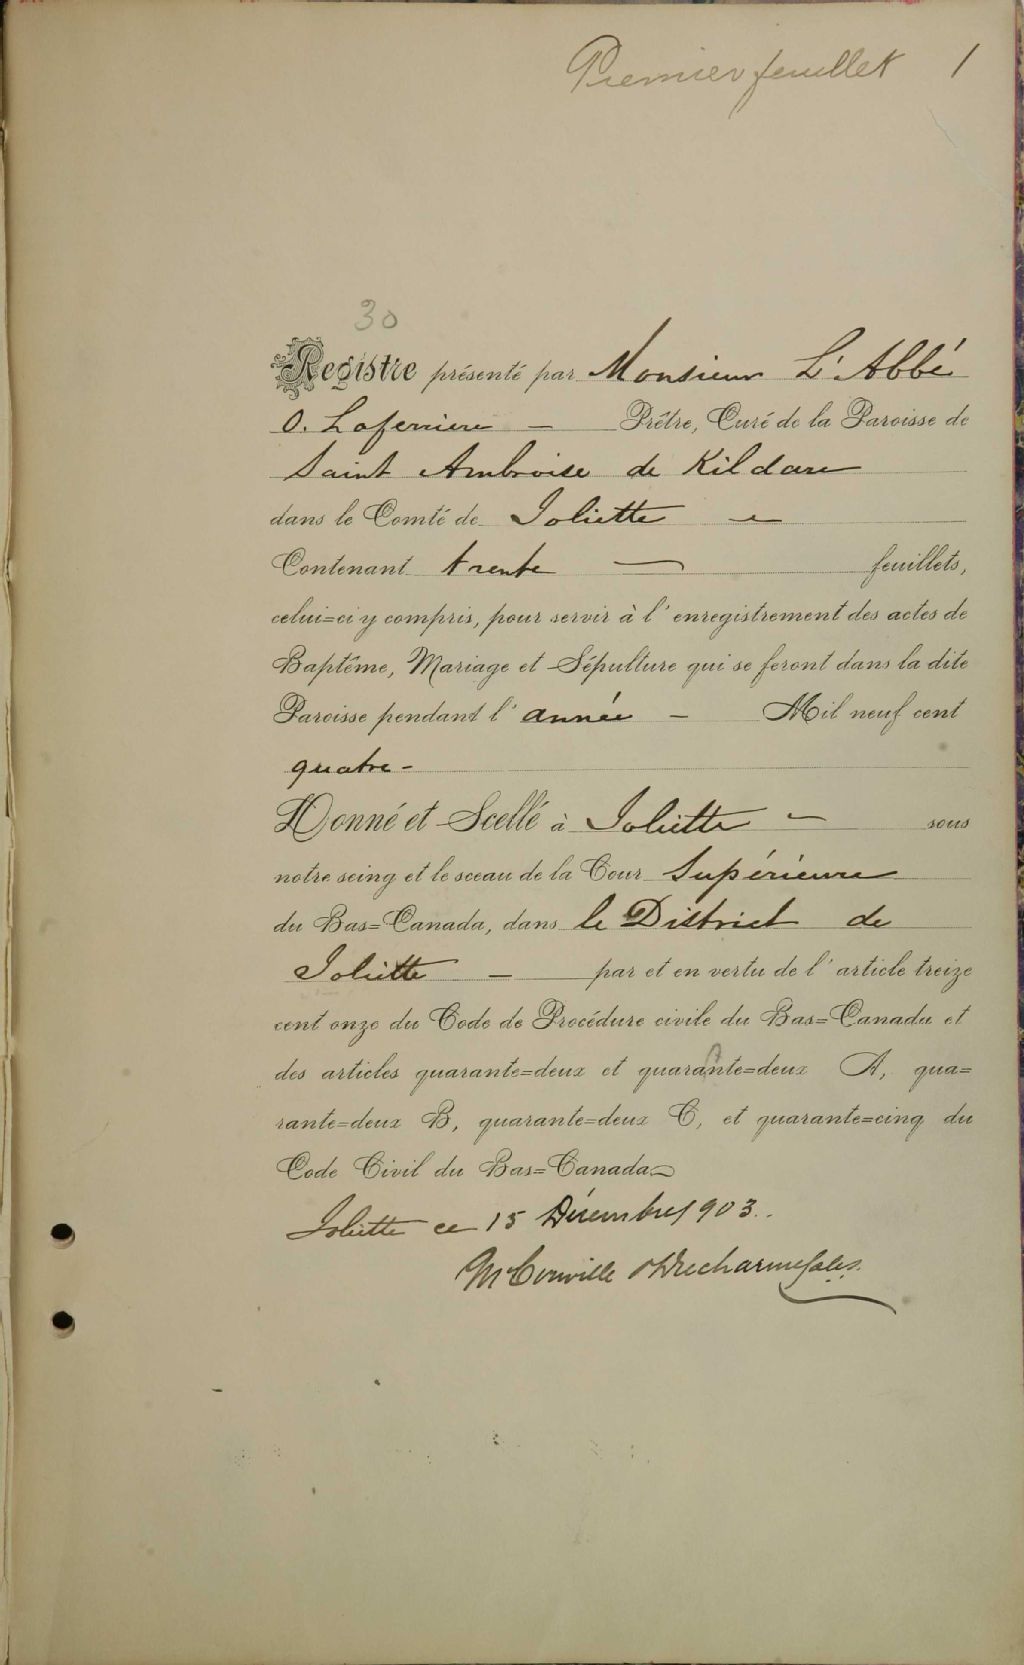 Premier feuillet 1
30
Registre présenté par Monsieur L'Abbé
O. Laferriere — Prêtre, Curé de la Paroisse de
Saint Ambroise de Kildare
dans le Comté de Joliette —
Contenant trente — feuillets,
celui=ci y compris, pour servir à l'enregistrement des actes de
Baptême, Mariage et Sépulture qui se feront dans la dite
Paroisse pendant l'année — Mil neuf cent
quatre -
Donné et Scellé à Joliette — sous
notre seing et le sceau de la Cour Supérieure
du Bas=Canada, dans le District de
Joliette — par et en vertu de l'article treize
cent onze du Code de Procédure civile du Bas=Canada et
des articles quarante=deux et quarante=deux A, qua=
rante=deux B, quarante=deux C, et quarante=cinq du
Code Civil du Bas=Canada
Joliette ce 15 Décembre 1903.